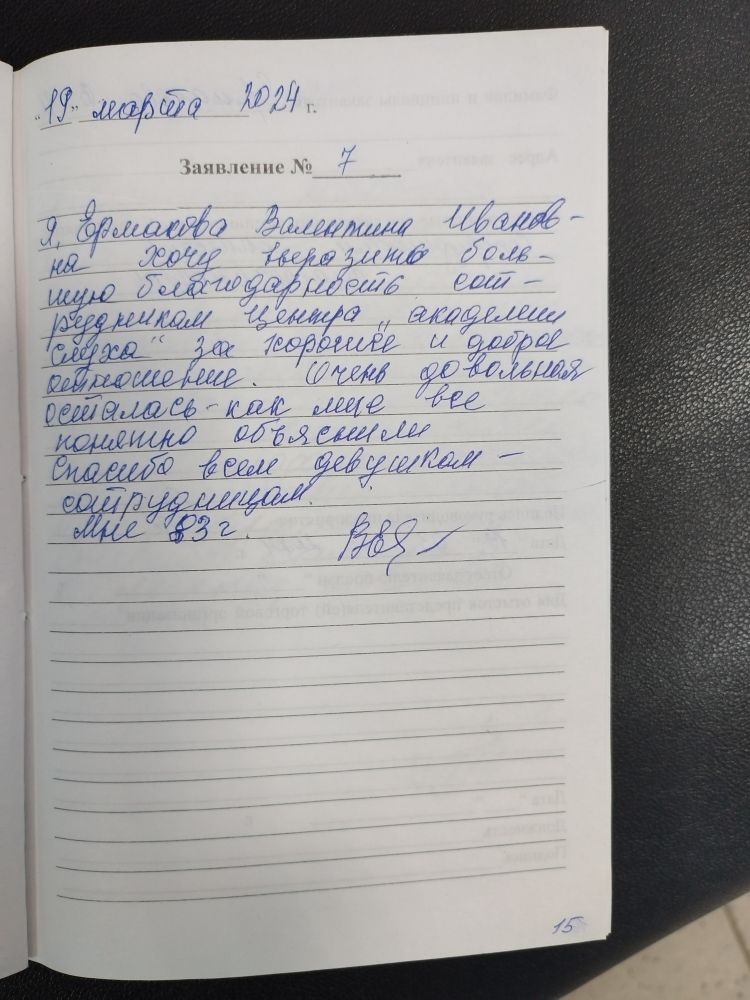 „19" марта 2024 г.
Заявление № 7
Я, Ермакова Валентина Иванов-
на хочу выразить боль-
шую благодарность сот-
рудникам центра „академии
слуха" за хорошее и доброе
отношение. Очень довольная
осталась - как мне все
понятно объяснили
Спасибо всем девушкам -
сотрудницам.
Мне 83 г.
15